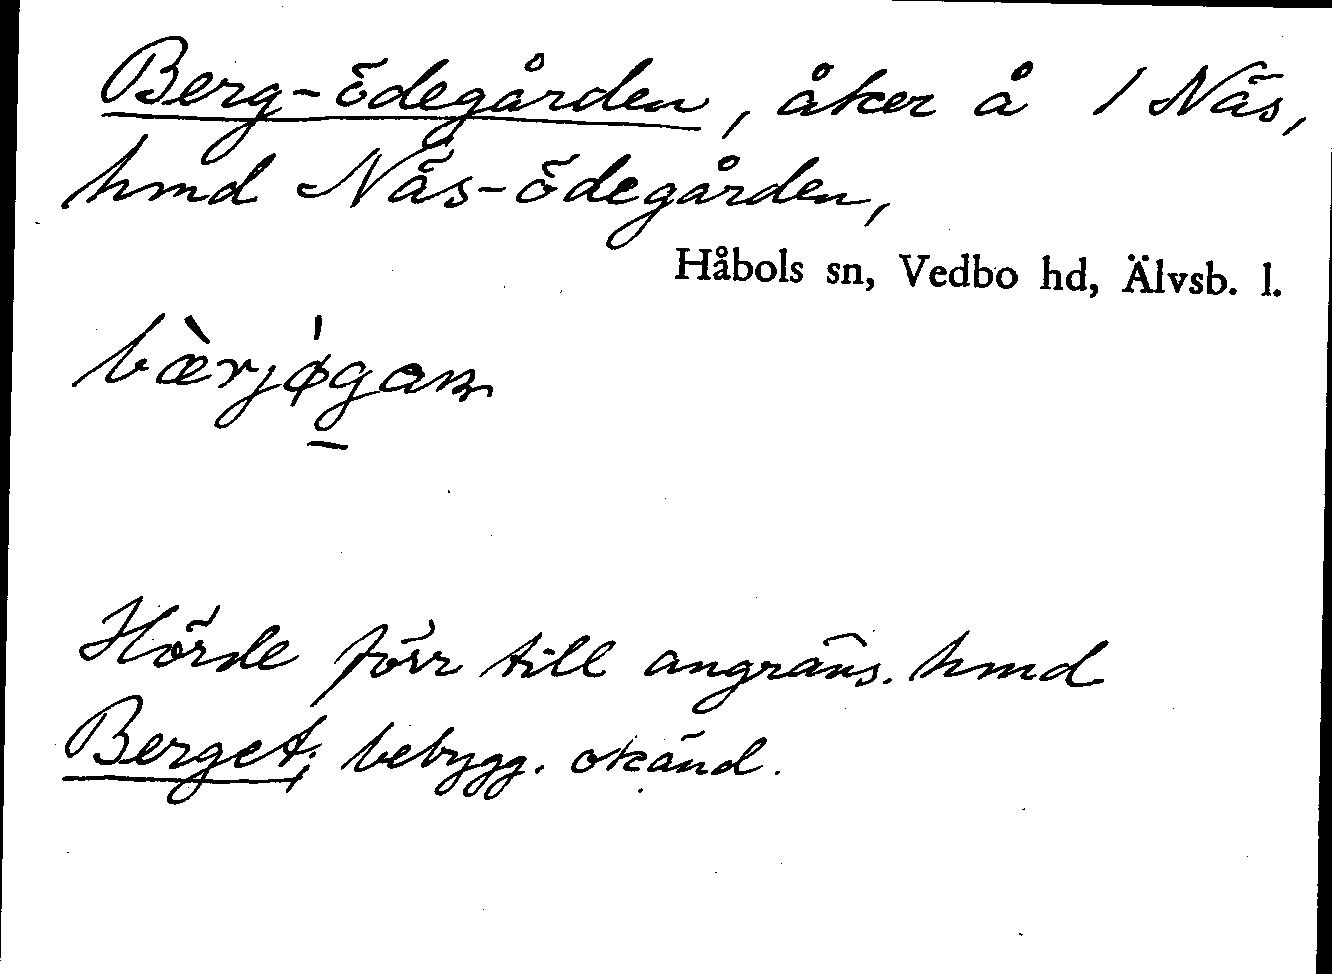 Berg-ödegården, åker å 1 Näs,
hmd Näs-ödegården,
Håbols sn, Vedbo hd, Älvsb. l.
bæ̀rjǿgaɴ
Hörde förr till angräns. hmd
Berget; bebygg. okänd.